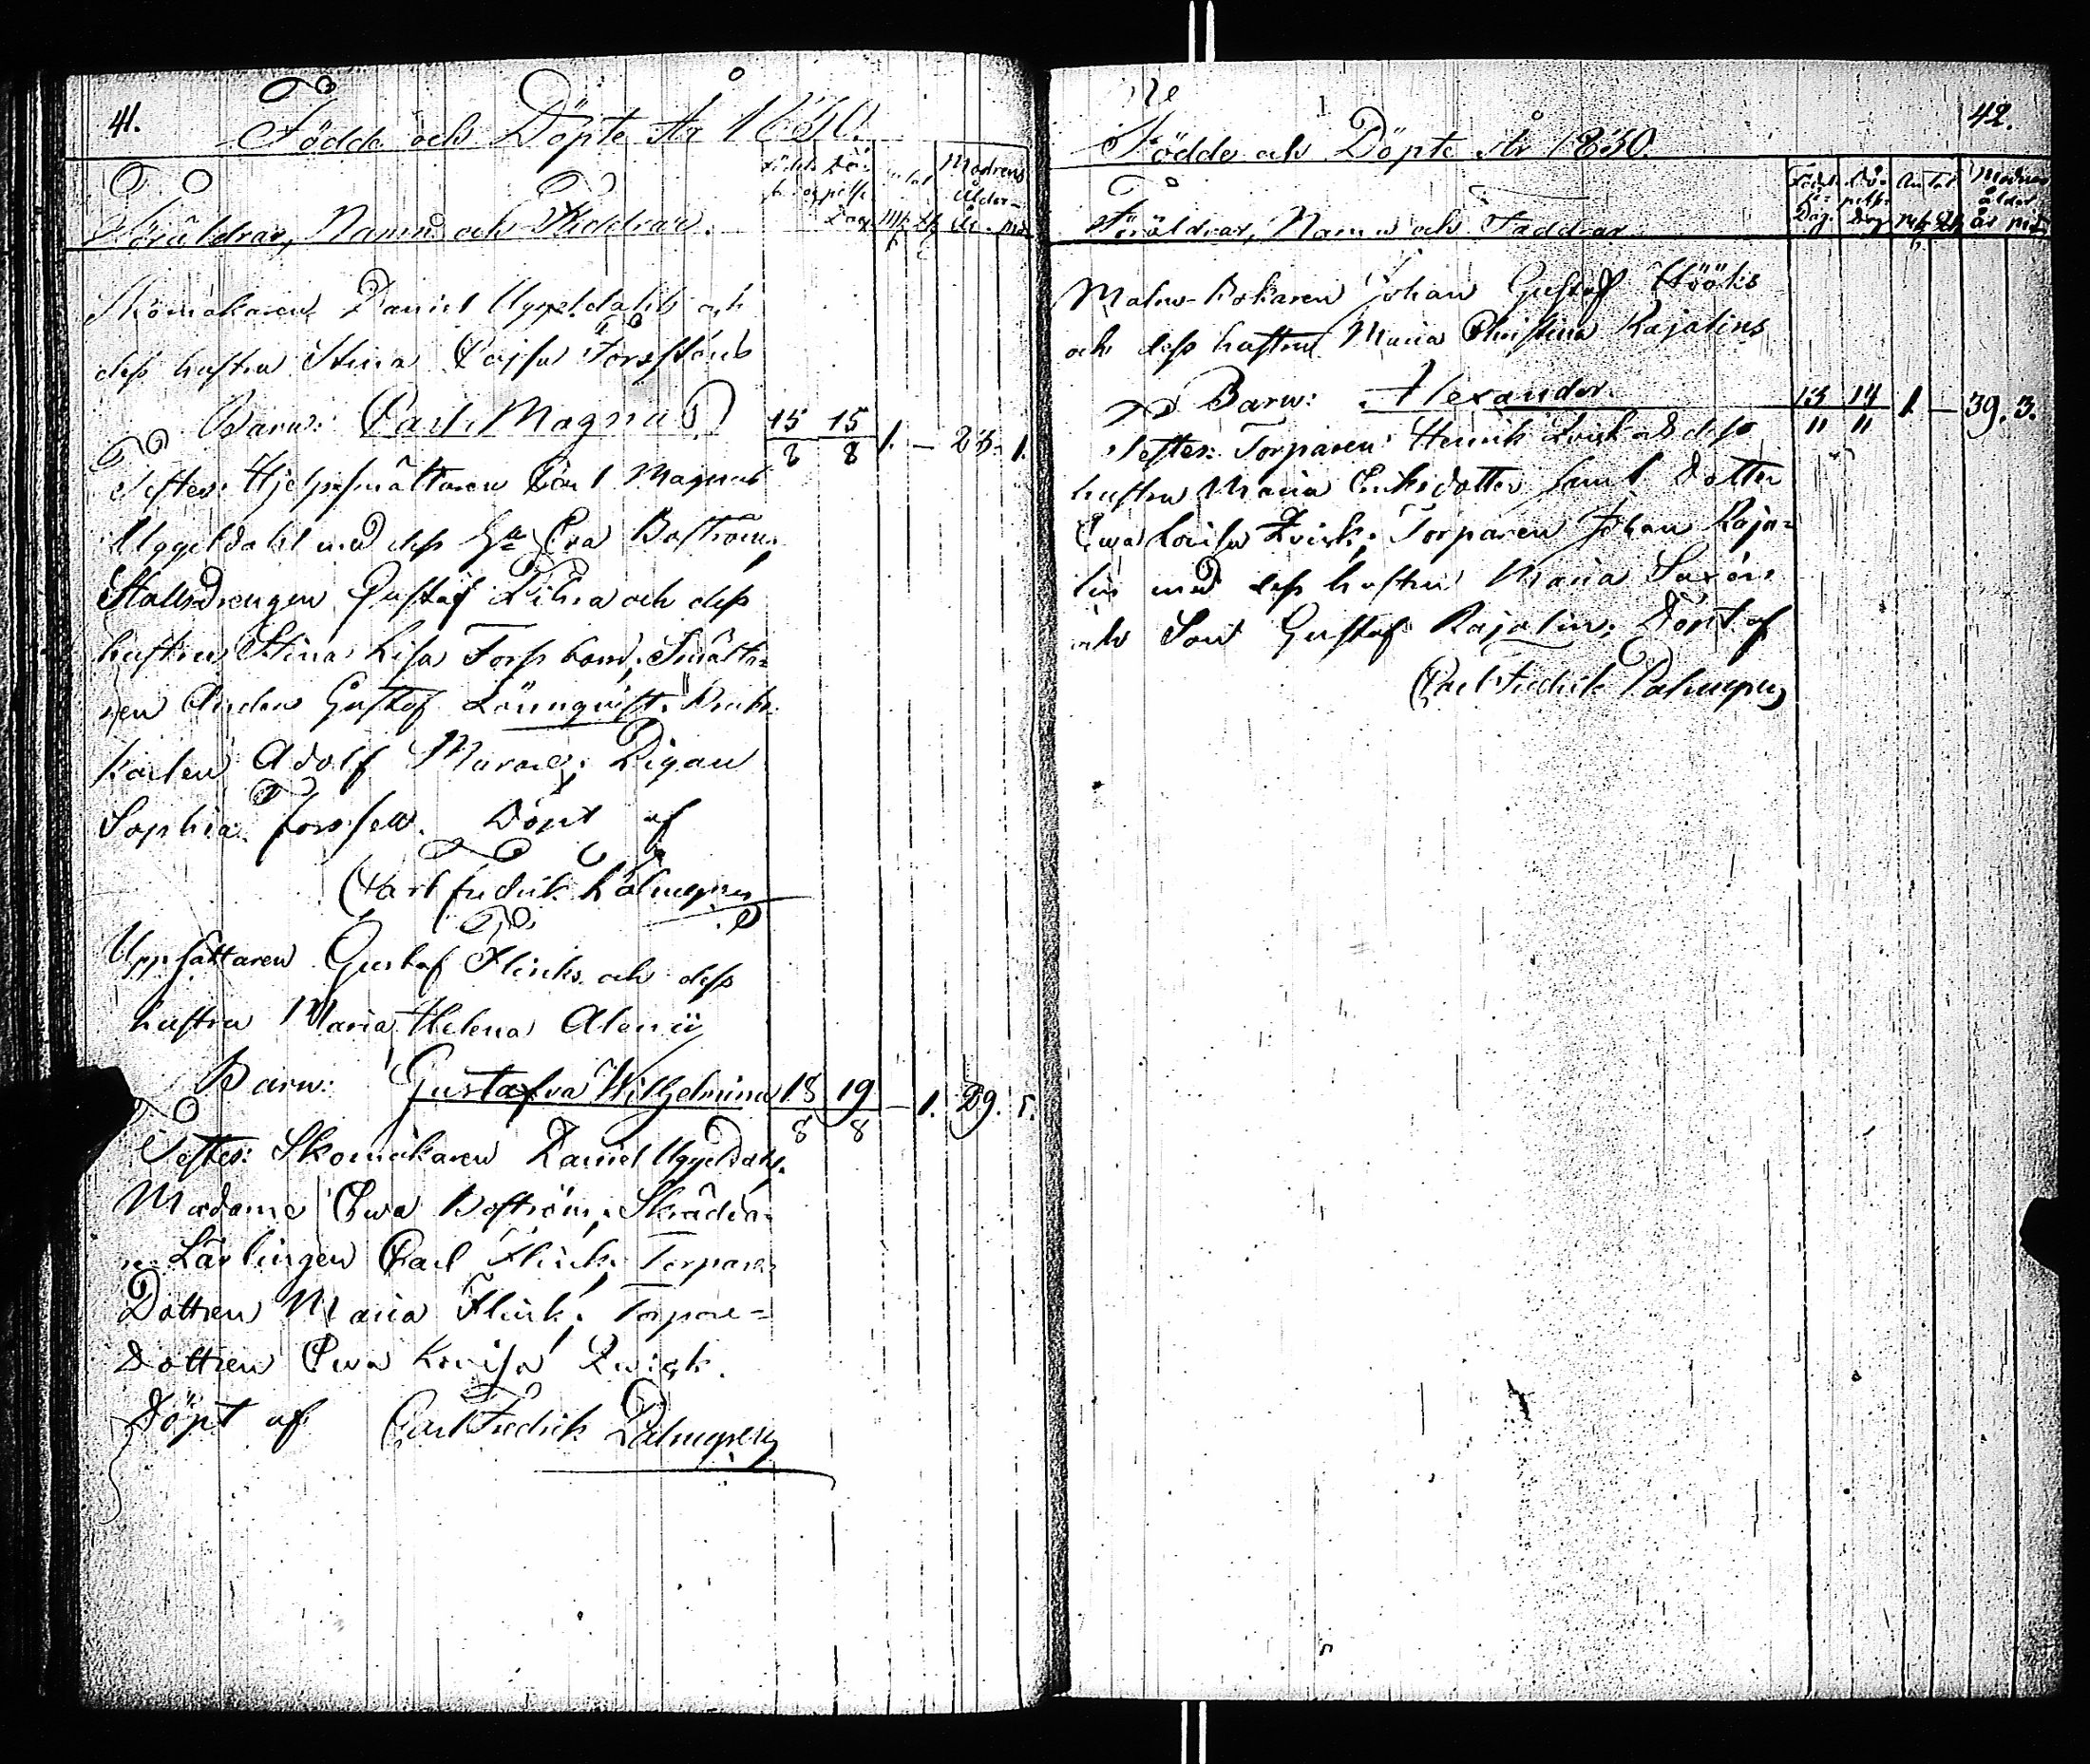 41.
Födde och Döpte År 1830.
Föräldrar, Namn och Faddrar.
Födel-
se
Dö-
pelse
Dag
Mk
Qk
Modrens
Ålder
År
Skomakaren Daniel Uggeldahls och
dess hustru Stina Cajsa
Barn: Carl Magnus
15/8 15/8 1. – 23. 1.
Testes: Hjelpsmältaren Carl Magnus
Uggeldahl med dess Eva Boström,
Stallsdrengen Gustaf Lihra och dess
hustru Stina Lisa Forsbom; Smälta-
ren Anders Gustaf Lönnqvist. Bruks-
karlen Adolf Pigan
Sophia Döpt af
Carl Fredrik Palmgren
Uppsättaren Gustaf Flinks och dess
hustru Maria Helena
Barn: Gustafva Wilhelmina
18/8 19/8 – 1. 29. 5.
Testes: Skomakaren Daniel Uggeldahl,
Madame Ewa Boström; Skrädda-
re Lärlingen Carl Flink; Torpare
Dottren Maria Flink; Torpare-
Dottren Ewa Lovisa Qwick.
Döpt af Carl Fredrik Palmgren
42.
Födde och Döpte År 1830.
Föräldrar, Namn och Faddrar
Födel-
se-
Dag.
Dö-
pelse-
Dag
Antal
Mk
Qk
Modrens
ålder
år
Malm-Bokaren Johan Gustaf Höök
och dess hustru Maria Christina Rajalins
Barn: Alexander
13/11 14/11 1. – 39. 3.
Testes: Torparen Henrik Qvick och dess
hustru Maria Eriksdotter samt dotter
Ewa Lovisa Qvick; Torparen Johan Raja-
lin med dess hustru Maria Saxén
och Son Gustaf Rajalin; Döpt af
Carl Fredrik Palmgren